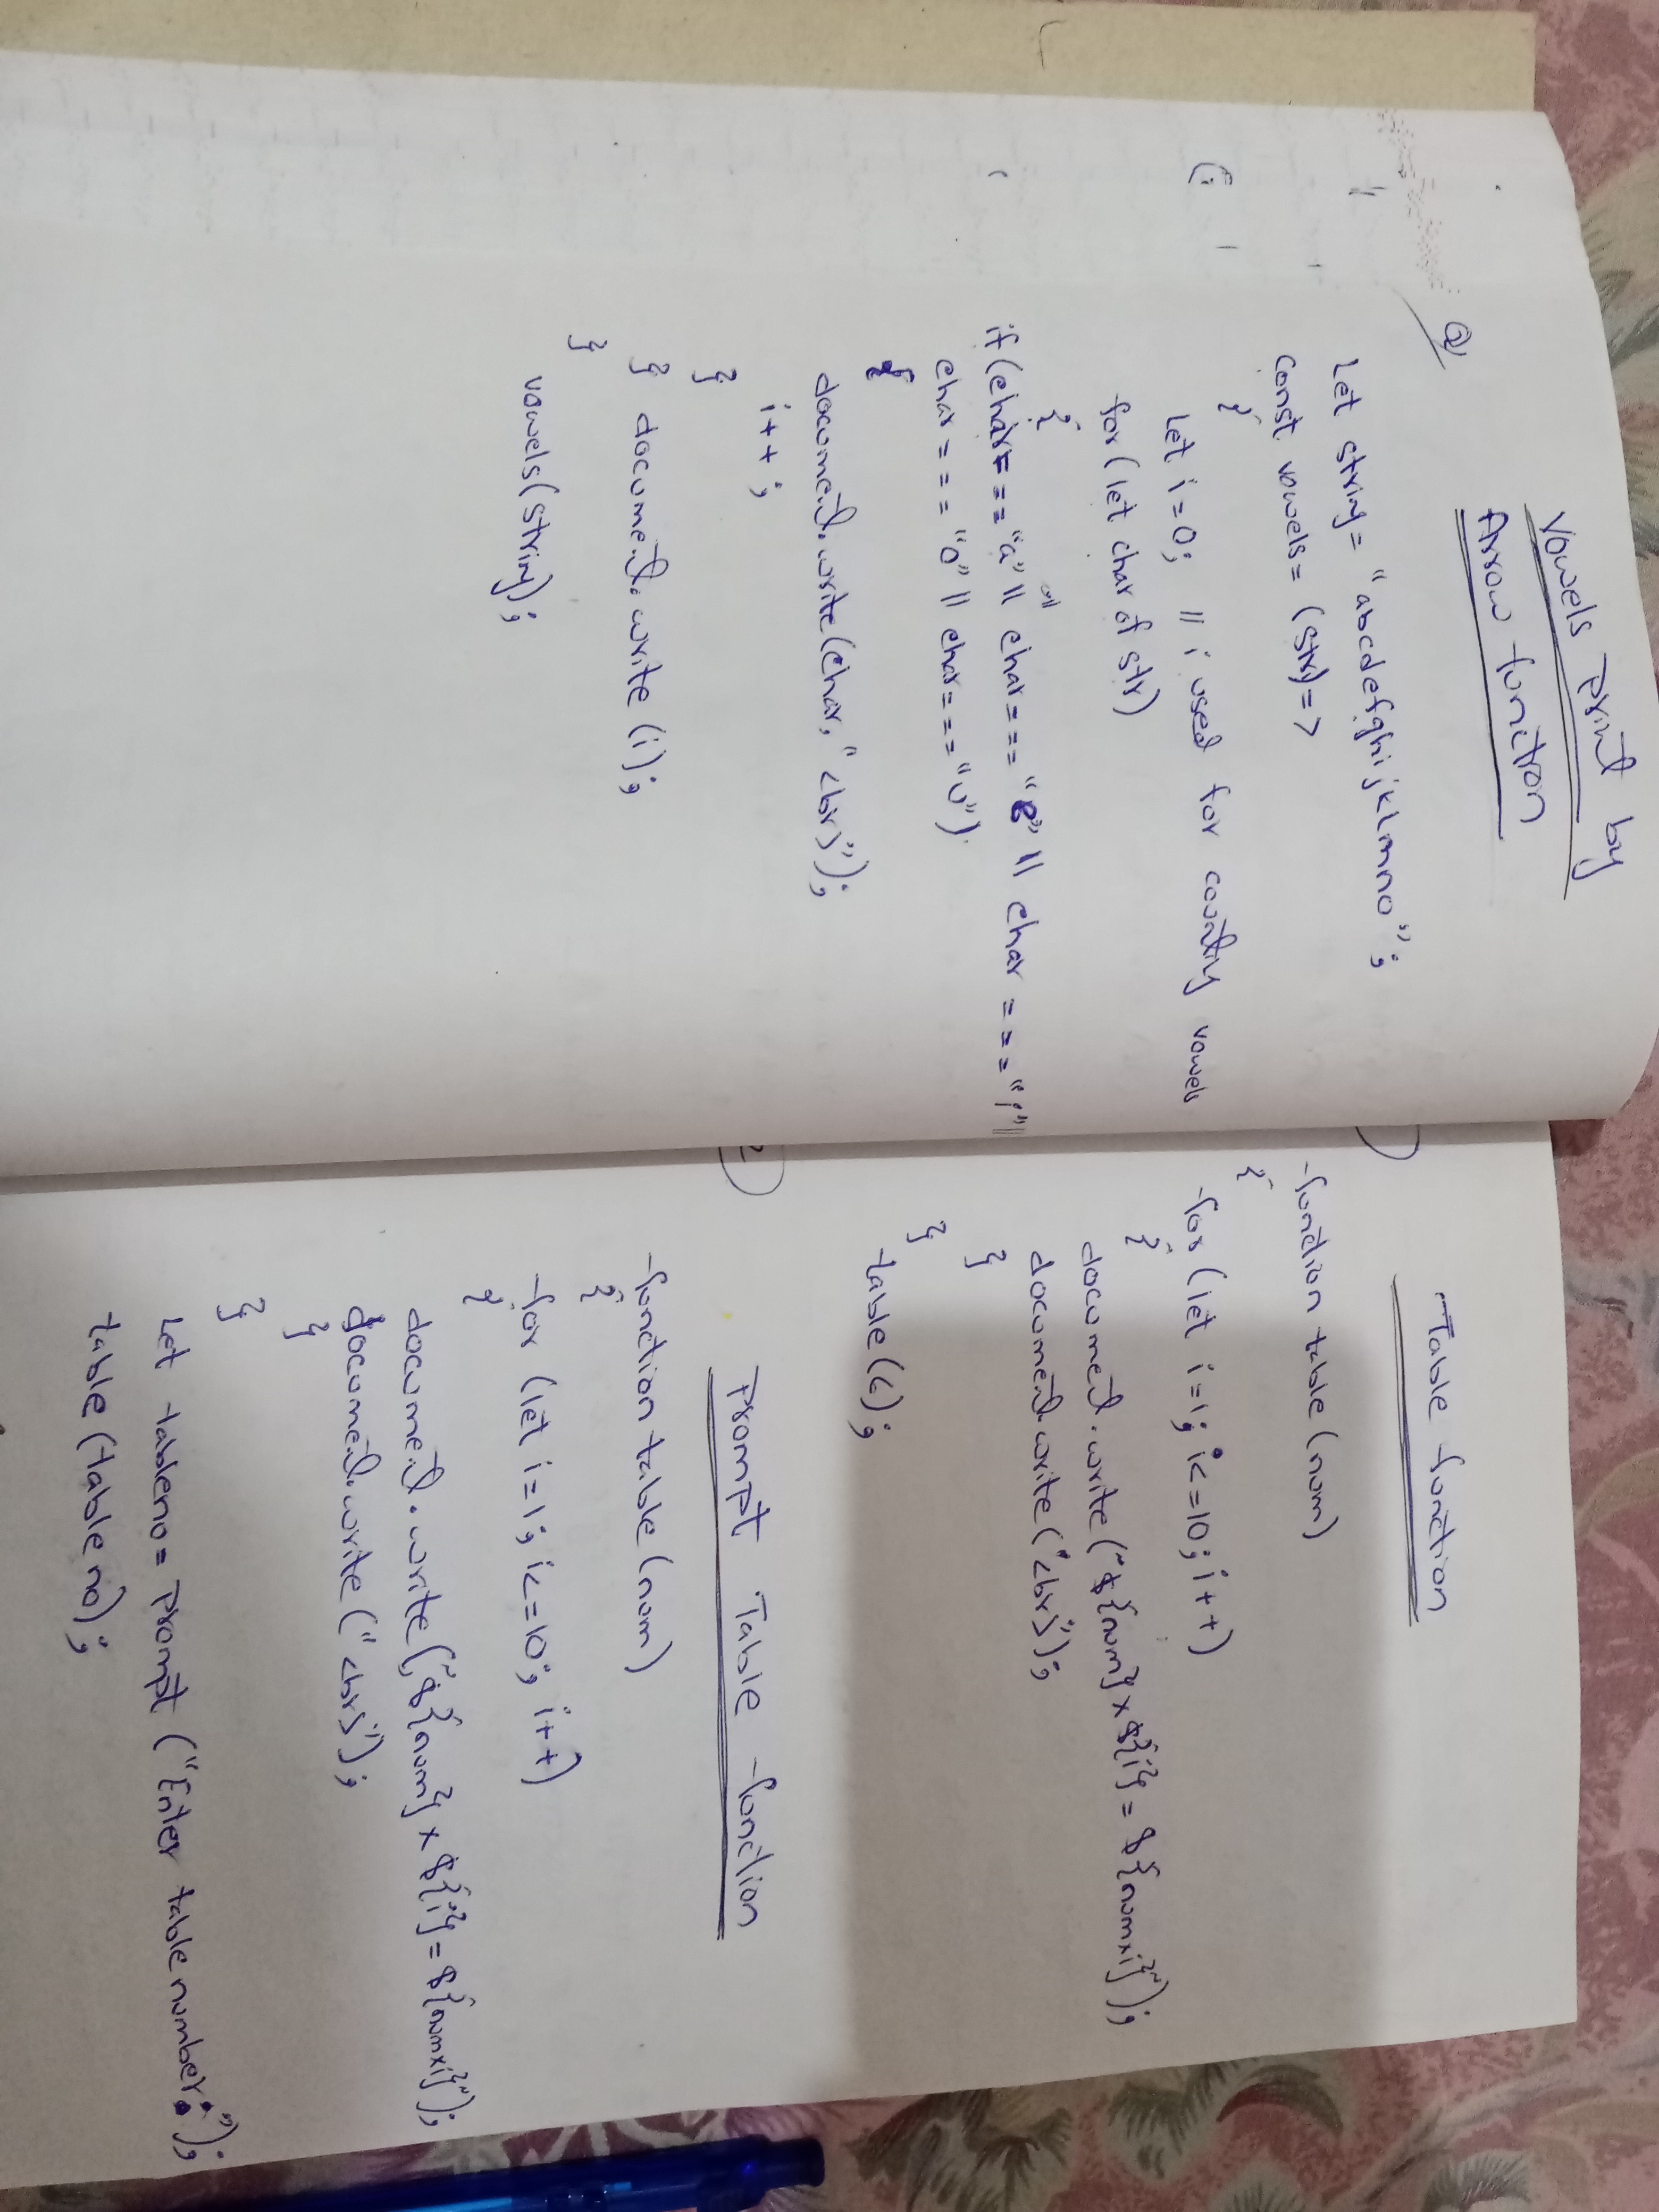 Vowels print by
Arrow function
Q
Let string = "abcdefghijklmno";
const vowels = (str) =>
{
let i=0; // i used for counting vowels
for (let char of str)
{
if (char === "a" || char === "e" || char === "i" ||
char === "o" || char === "u")
{
document.write(char, "<br>");
i++;
}
} document.write (i);
}
vowels(string);
Table function
function table (num)
{
for (let i=1; i<=10; i++)
{
document.write (`${num} x ${i} = ${num x i}`);
document.write ("<br>");
}
}
table ( );
2
Prompt Table function
function table (num)
{
for (let i=1; i<=10; i++)
{
document.write (`${num} x ${i} = ${num x i}`);
document.write ("<br>");
}
}
Let tableno = prompt ("Enter table number:");
table (tableno);